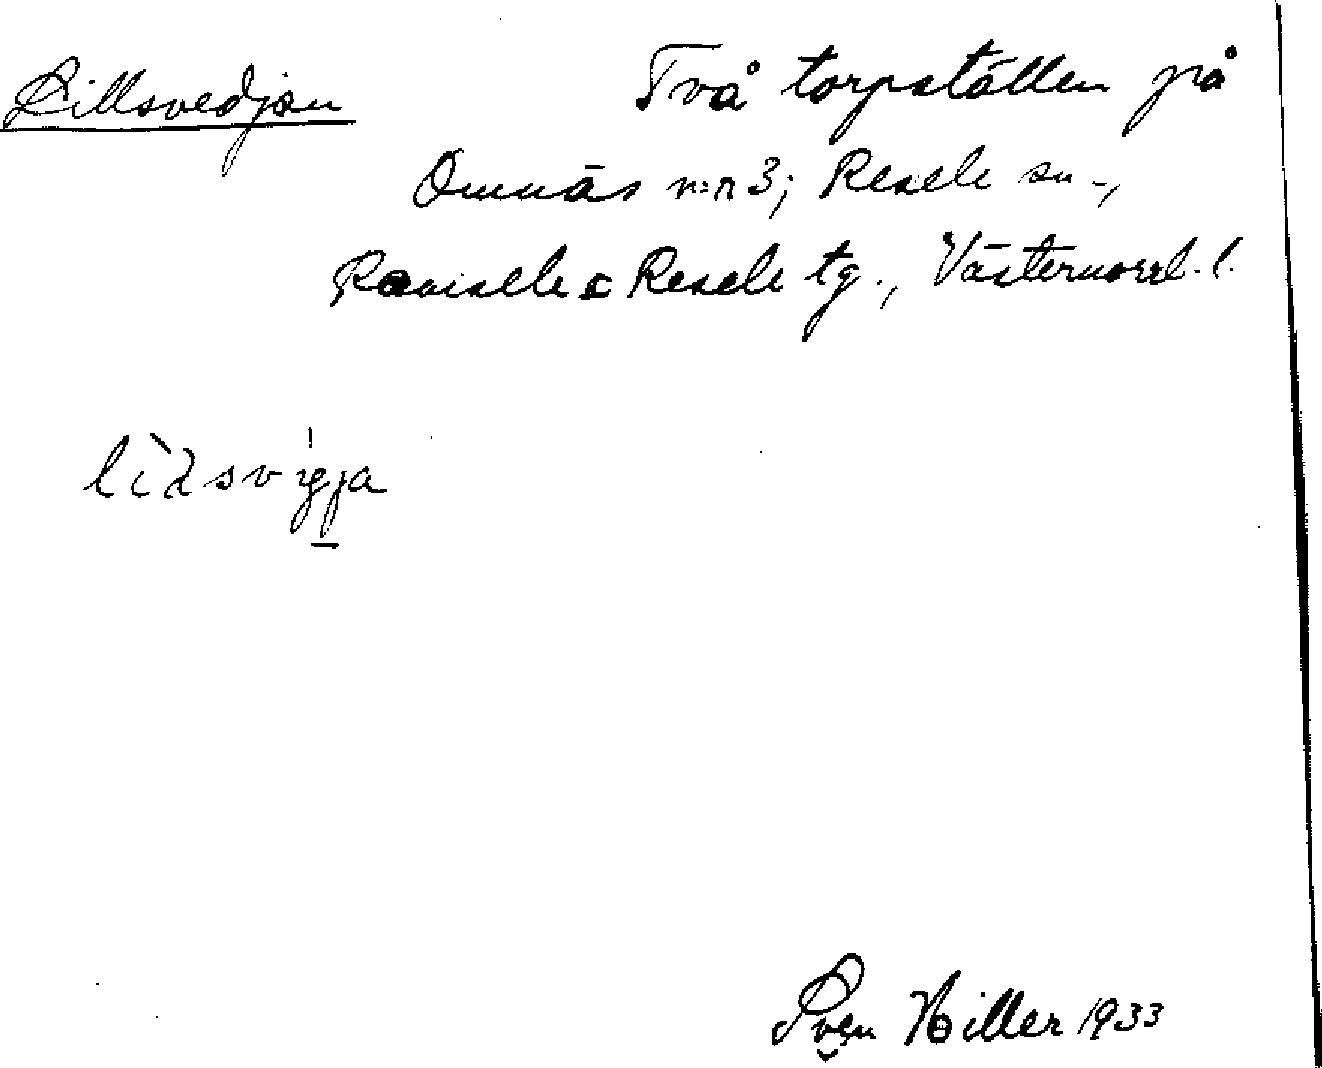 Lillsvedjan
Två torpställen på
Omnäs n:r 3; Resele sn.,
Ramsele o Resele tg., Västernorrl. l.
Sven Hiller 1933